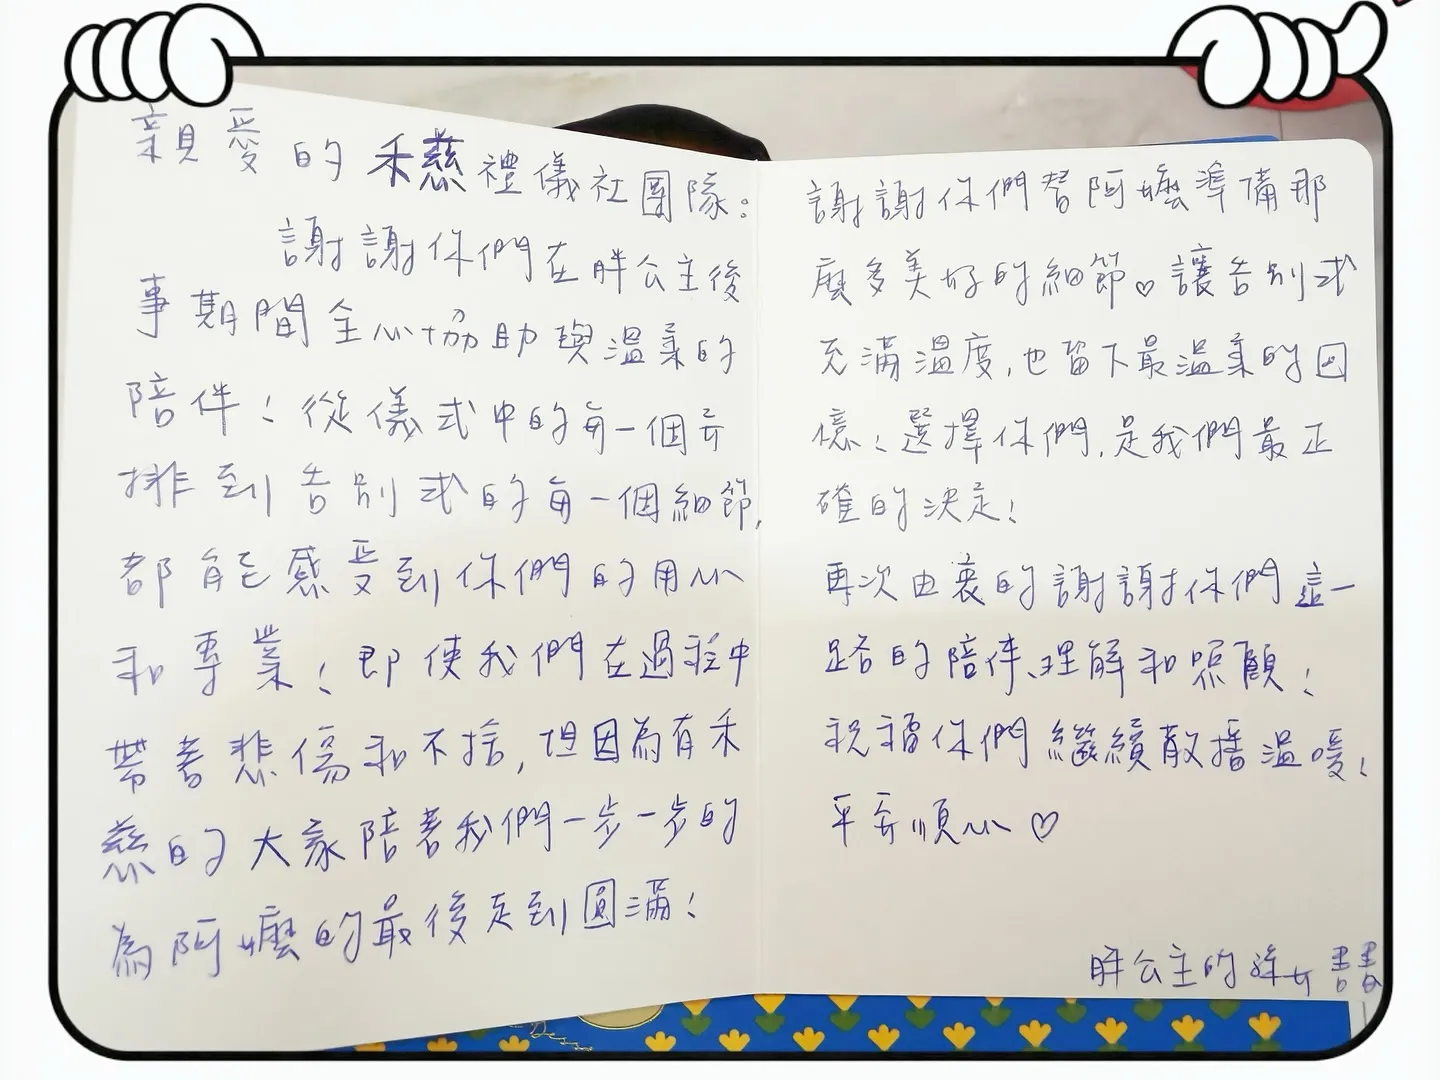 親愛的禾慈禮儀社團隊:
謝謝你們在胖公主後
事期間全心協助與溫柔的
陪伴!從儀式中的每一個安
排到告別式的每一個細節,
都能感受到你們的用心
和專業!即使我們在過程中
帶著悲傷和不捨,但因為有禾
慈的大家陪著我們一步一步的
為阿嬤的最後走到圓滿!
謝謝你們替阿嬤準備那
麼多美好的細節♡讓告別式
充滿溫度,也留下最溫柔的回
憶!選擇你們,是我們最正
確的決定!
再次由衷的謝謝你們這一
路的陪伴、理解和照顧!
祝福你們繼續散播溫暖!
平安順心♡
胖公主的孫女書書